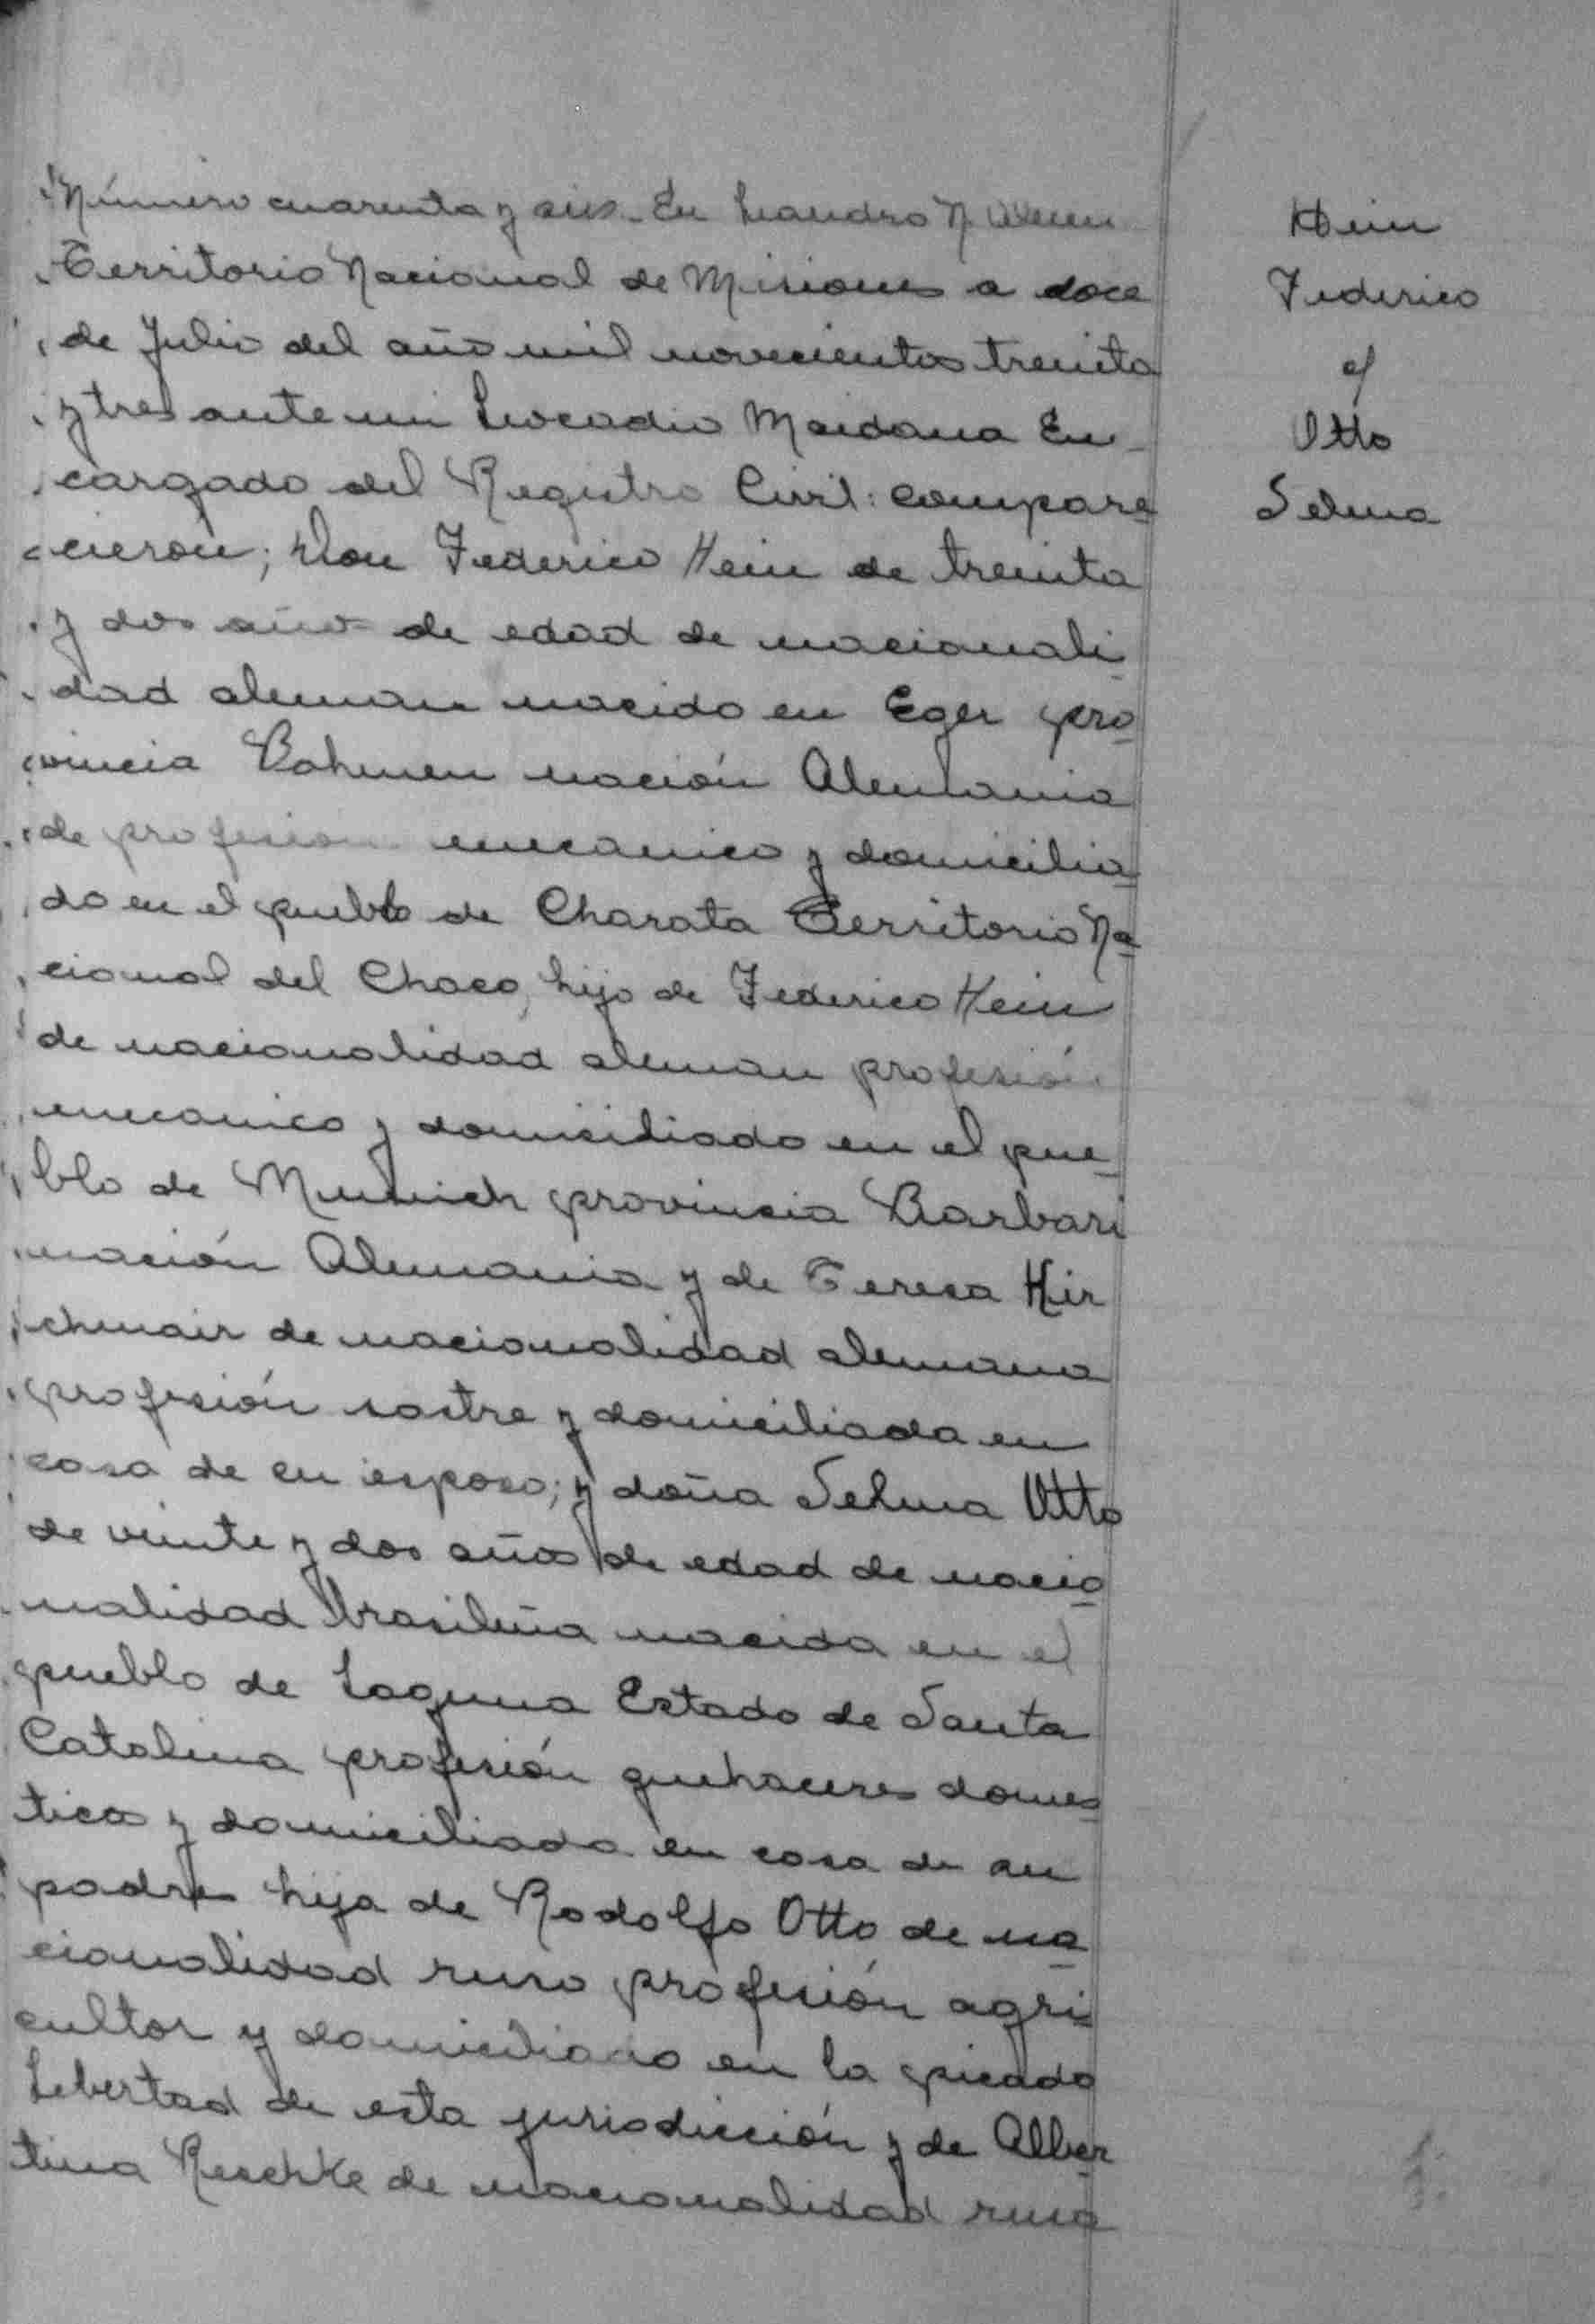 Número cuarenta y seis. En Leandro N Alem
Territorio Nacional de Misiones a doce
de Julio del año mil novecientos treinta
y tres ante mi Leocadio Maidana En-
cargado del Registro Civil: compare
cieron; Don Federico Hein de treinta
y dos años de edad de nacionali
dad aleman nacido en Eger pro
vincia Bohmen nación Alemania
de profesion mecanico y domicilia
do en el pueblo de Charata Territorio Na
cional del Chaco, hijo de Federico Hein
de nacionalidad aleman profesión
mecanico y domiciliado en el pue
blo de Munich provincia Barbari
nación Alemania y de Teresa Hir
chmair de nacionalidad alemana
profesión sastre y domiciliada en
casa de su esposo; y doña Selma Otto
de veinte y dos años de edad de nacio
nalidad brasileña nacida en el
pueblo de Laguna Estado de Santa
Catalina profesión quehaceres domes
ticos y domiciliada en casa de su
padres hija de Rodolfo Otto de na
cionalidad ruso profesión agri
cultor y domiciliado en la picada
Libertad de esta jurisdicción y de Alber
tina Reschke de nacionalidad rusa
Hein
Federico
c/
Otto
Selma